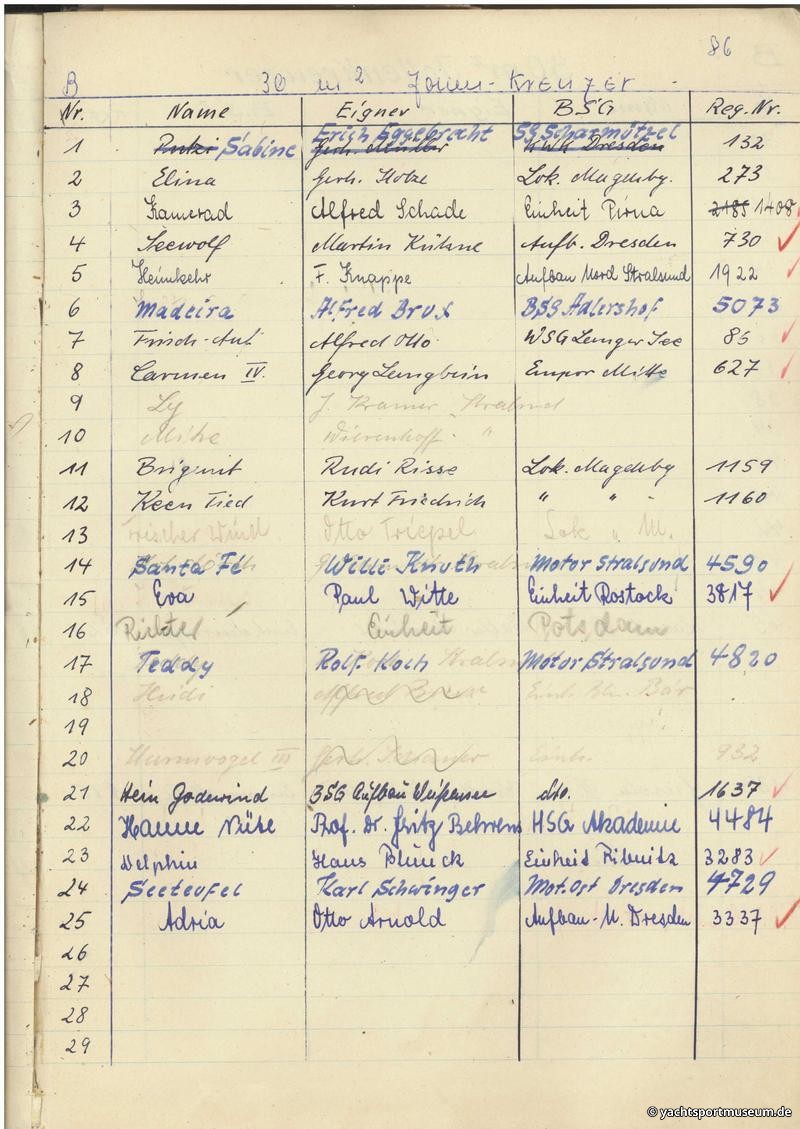 86
B 30 m² Jollen-Kreuzer
Nr. Name Eigner BSG Reg.Nr.
Erich Eggebrecht SG Scharmützel
1 Sabine KWK Dresden 132
2 Elina Gerh. Hotze Lok. Magdebg. 273
3 Kamerad Alfred Schade Einheit Pirna 2185 1408
4 Seewolf Martin Kühne Aufb. Dresden 730
5 Heimkehr F. Knappe Aufbau Nord Stralsund 1922
6 Madeira Alfred Brux BSG Adlershof 5073
7 Frisch-Auf Alfred Otto WSG Lemger See 86
8 Carmen IV. Georg Lemgbrin Empor Mitte 627
9 Ly J. Kramer Stralsund
10 Mitze "
11 Brigant Rudi Risse Lok. Magdebg 1159
12 Keen Tied Kurt Friedrich " " " 1160
13 Frischer Wind Otto Triepel Lok " M.
14 Santa Fé Willi Knuth Motor Stralsund 4590
15 Eva Paul Witte Einheit Rostock 3817
16 Richter Einheit Potsdam
17 Teddy Rolf Koch Motor Stralsund 4820
18 Heidi
19
20 III 932
21 Hein Godewind BSG Aufbau Weißensee dto. 1637
22 Hanne Nüte Prof. Dr. Fritz Behrens HSG Akademie 4484
23 Delphin Hans Blunck Einheit Ribnitz 3283
24 Seeteufel Karl Schwinger Mot. Ost Dresden 4729
25 Adria Otto Arnold Aufbau-M. Dresden 3337
26
27
28
29
© yachtsportmuseum.de